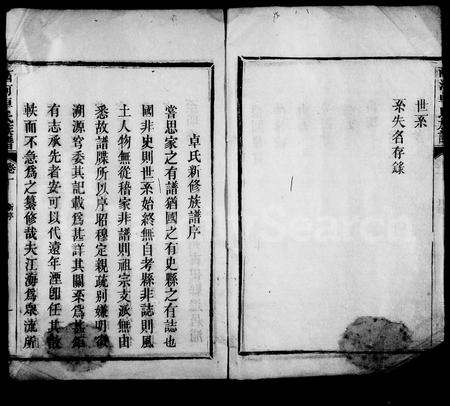 世系
系失名存錄
卓氏新修族譜序
嘗思家之有譜猶國之有史縣之有誌也
國非史則世系始終無自考縣非誌則風
土人物無從稽家非譜則祖宗支派無由
悉故譜牒所以序昭穆定親疏別嫌明
溯源窮委其記載為甚詳其關系為甚
有志承先者安可以代遠年湮卽任其
軼而不急為之纂修哉夫江海為眾流所